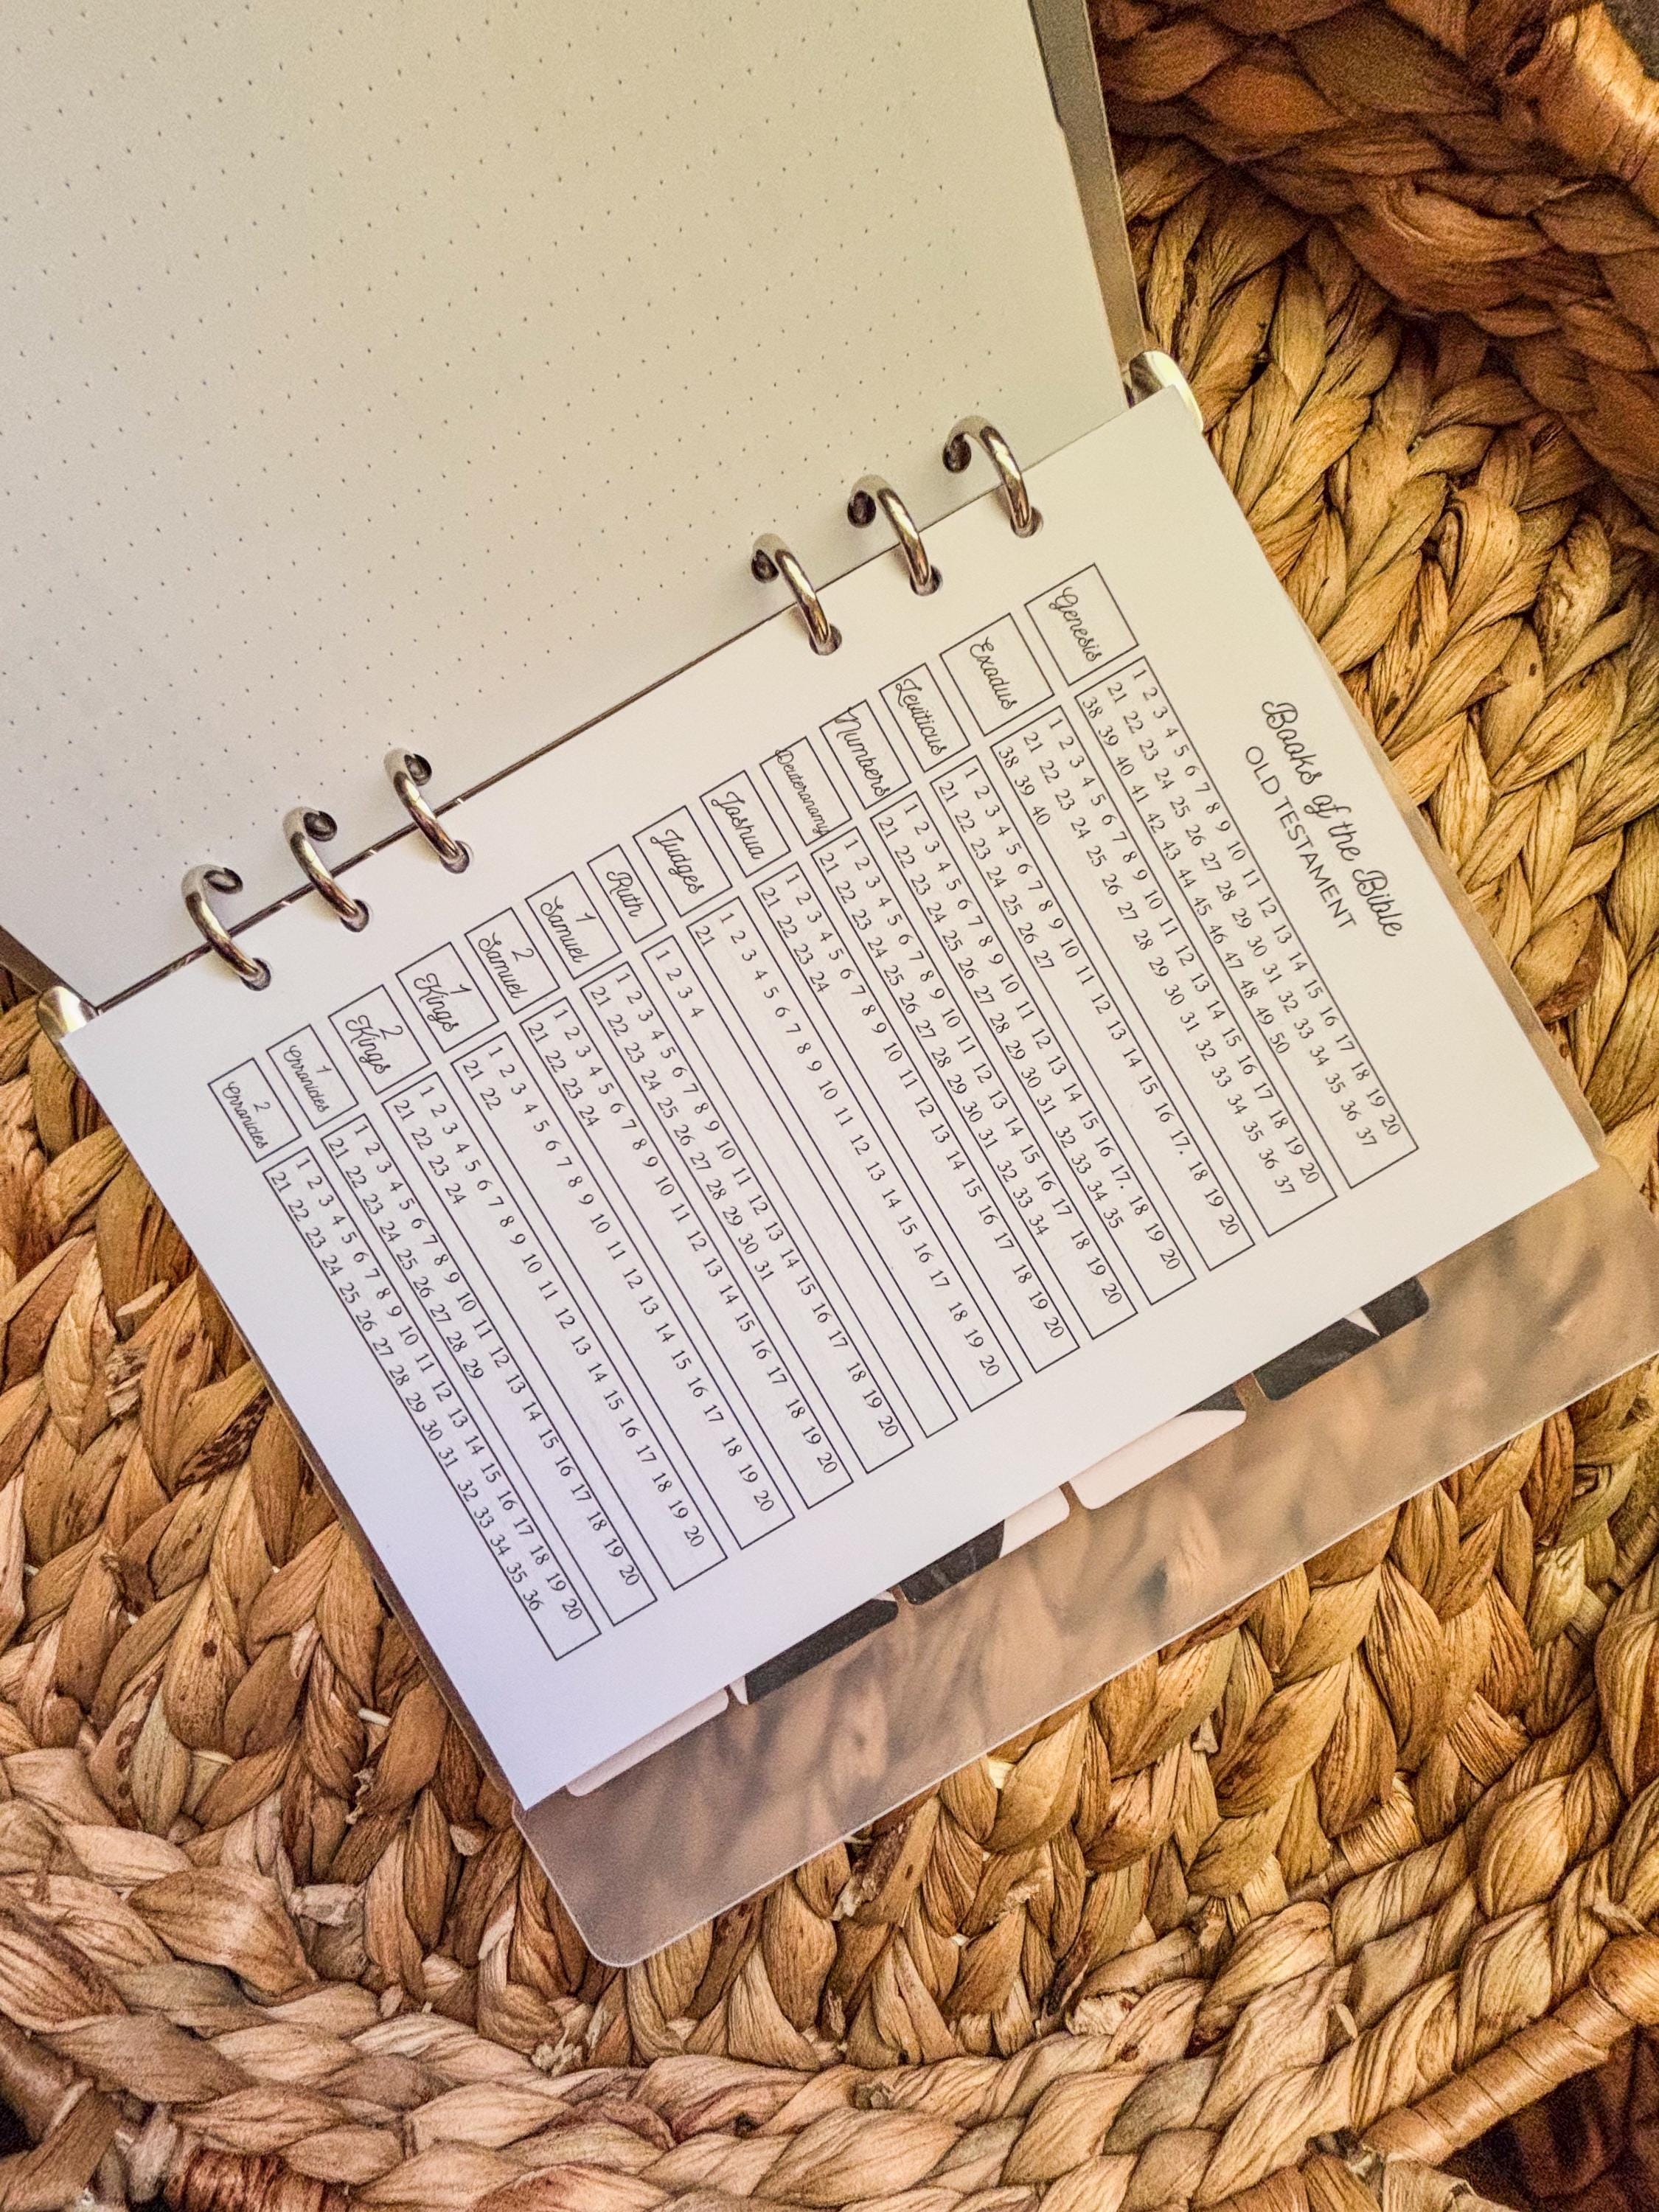 Books of the Bible
OLD TESTAMENT
Genesis
1 2 3 4 5 6 7 8 9 10 11 12 13 14 15 16 17 18 19 20
21 22 23 24 25 26 27 28 29 30 31 32 33 34 35 36 37
38 39 40 41 42 43 44 45 46 47 48 49 50
Exodus
1 2 3 4 5 6 7 8 9 10 11 12 13 14 15 16 17 18 19 20
21 22 23 24 25 26 27 28 29 30 31 32 33 34 35 36 37
38 39 40
Leviticus
1 2 3 4 5 6 7 8 9 10 11 12 13 14 15 16 17. 18 19 20
21 22 23 24 25 26 27
Numbers
1 2 3 4 5 6 7 8 9 10 11 12 13 14 15 16 17. 18 19 20
21 22 23 24 25 26 27 28 29 30 31 32 33 34 35
Deuteronomy
1 2 3 4 5 6 7 8 9 10 11 12 13 14 15 16 17 18 19 20
21 22 23 24 25 26 27 28 29 30 31 32 33 34
Joshua
1 2 3 4 5 6 7 8 9 10 11 12 13 14 15 16 17 18 19 20
21 22 23 24
Judges
1 2 3 4 5 6 7 8 9 10 11 12 13 14 15 16 17 18 19 20
21
Ruth
1 2 3 4
1
Samuel
1 2 3 4 5 6 7 8 9 10 11 12 13 14 15 16 17 18 19 20
21 22 23 24 25 26 27 28 29 30 31
2
Samuel
1 2 3 4 5 6 7 8 9 10 11 12 13 14 15 16 17 18 19 20
21 22 23 24
1
Kings
1 2 3 4 5 6 7 8 9 10 11 12 13 14 15 16 17 18 19 20
21 22
2
Kings
1 2 3 4 5 6 7 8 9 10 11 12 13 14 15 16 17 18 19 20
21 22 23 24
1
Chronicles
1 2 3 4 5 6 7 8 9 10 11 12 13 14 15 16 17 18 19 20
21 22 23 24 25 26 27 28 29
2
Chronicles
1 2 3 4 5 6 7 8 9 10 11 12 13 14 15 16 17 18 19 20
21 22 23 24 25 26 27 28 29 30 31 32 33 34 35 36